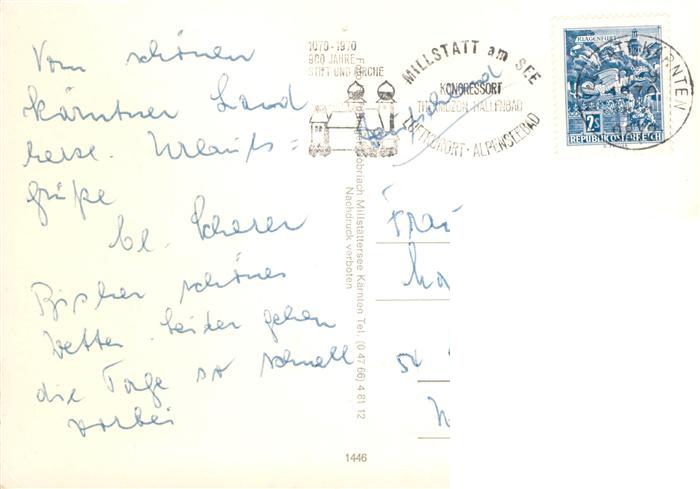 Vom schönen
Kärntner Land
herzl. Urlaubs=
grüße
Bisher schönes
Wetter. Leider gehen
die Tage so schnell
vorbei
1070-1970
900 JAHRE
STIFT UND KIRCHE
MILLSTATT am SEE
KONGRESSORT
THERMOZON HALLENBAD
LUFTKURORT · ALPENSEEBAD
Deutschland
KLAGENFURT
2S
REPUBLIK ÖSTERREICH
KÄRNTEN
Frau
Döbriach Millstättersee Kärnten Tel. (0 47 66) 4 81 12
Nachdruck verboten
1446